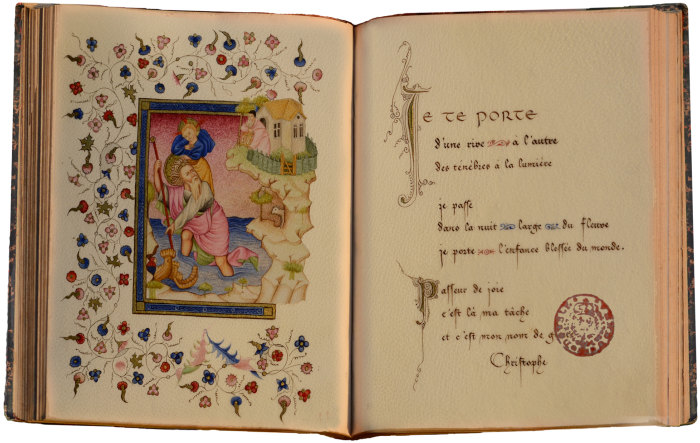 Je te porte
d'une rive à l'autre
des ténèbres à la lumière
je passe
dans la nuit large du fleuve
je porte l'enfance blessée du monde.
Passeur de joie
c'est là ma tâche
et c'est mon nom de
Christophe